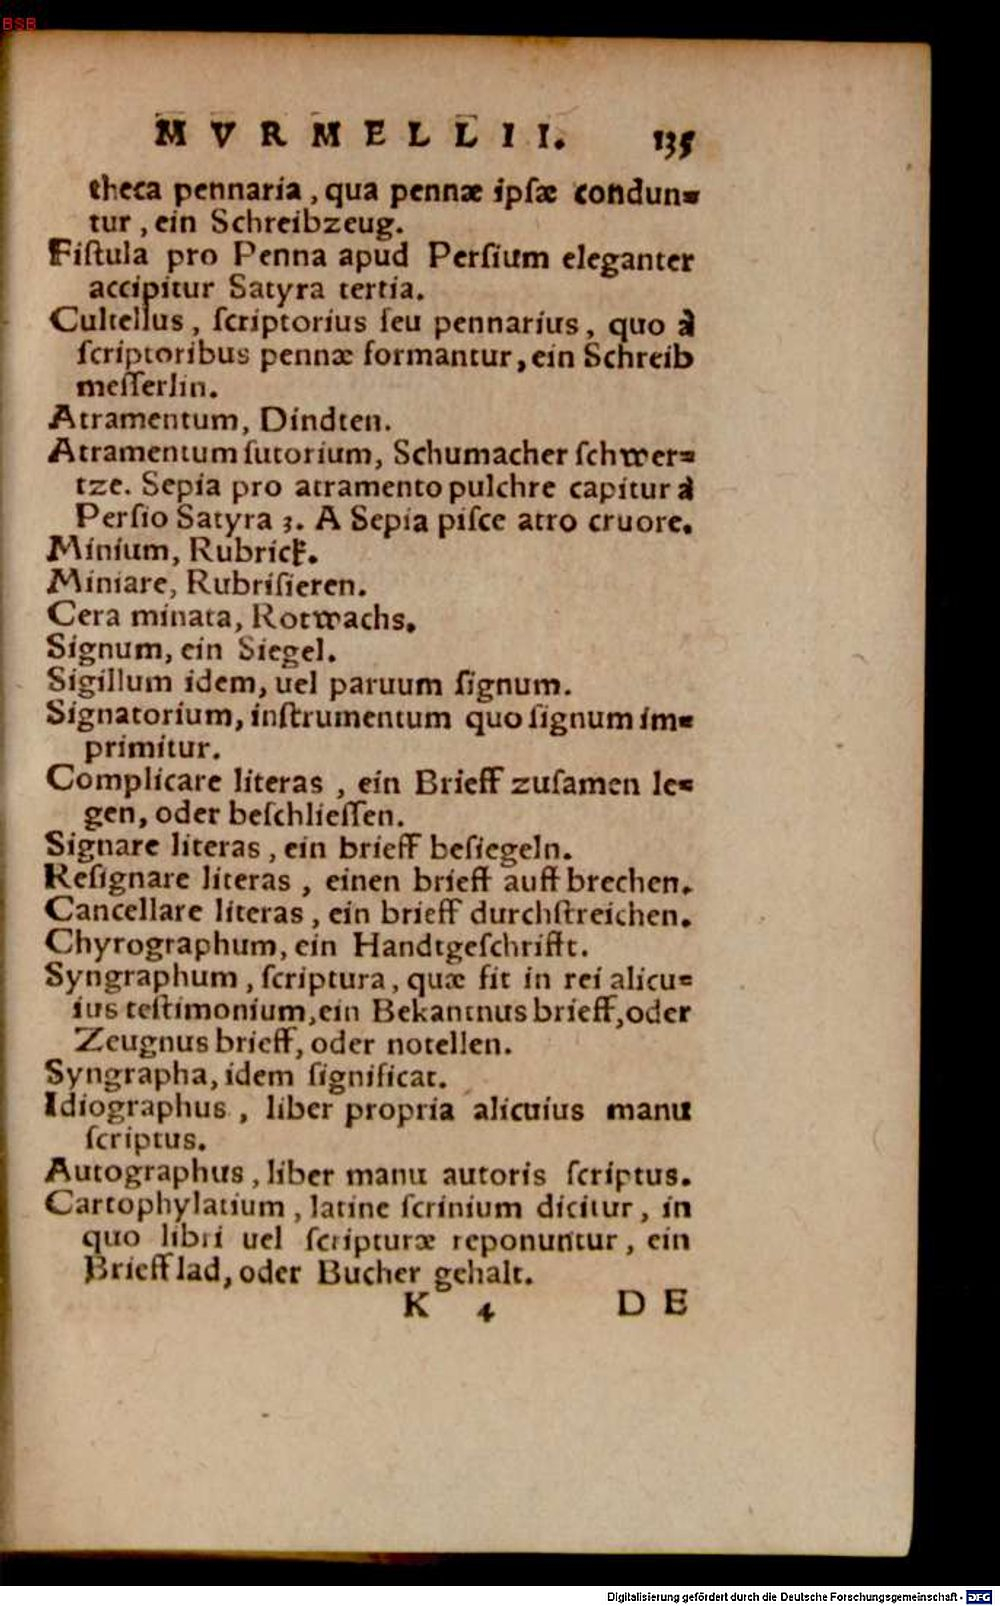 BSB
MVRMELLII. 135
theca pennaria, qua pennæ ipſæ condun=
tur, ein Schreibzeug.
Fiſtula pro Penna apud Perſium eleganter
accipitur Satyra tertia.
Cultellus, ſcriptorius ſeu pennarius, quo à
ſcriptoribus pennæ formantur, ein Schreib
meſſerlin.
Atramentum, Dindten.
Atramentum ſutorium, Schumacher ſchwer=
tze. Sepia pro atramento pulchre capitur à
Perſio Satyra 3. A Sepia piſce atro cruore.
Minium, Rubrick.
Miniare, Rubriſieren.
Cera minata, Rotwachs.
Signum, ein Siegel.
Sigillum idem, uel paruum ſignum.
Signatorium, inſtrumentum quo ſignum im=
primitur.
Complicare literas, ein Brieff zuſamen le=
gen, oder beſchlieſſen.
Signare literas, ein brieff beſiegeln.
Reſignare literas, einen brieff auff brechen.
Cancellare literas, ein brieff durchſtreichen.
Chyrographum, ein Handtgeſchrifft.
Syngraphum, ſcriptura, quæ fit in rei alicu=
ius teſtimonium, ein Bekantnus brieff, oder
Zeugnus brieff, oder notellen.
Syngrapha, idem ſignificat.
Idiographus, liber propria alicuius manu
ſcriptus.
Autographus, liber manu autoris ſcriptus.
Cartophylatium, latine ſcrinium dicitur, in
quo libri uel ſcripturæ reponuntur, ein
Brieff lad, oder Bucher gehalt.
K 4 DE
Digitalisierung gefördert durch die Deutsche Forschungsgemeinschaft - DFG